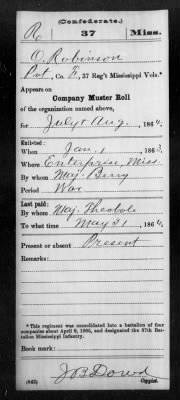 (Confederate.)
R 37 Miss.
O. Robinson
Pvt, Co. E, 37 Reg't Mississippi Vols.*
Appears on
Company Muster Roll
of the organization named above,
for July & Aug., 1864.
Enlisted:
When Jan. 1, 1863.
Where Enterprise, Miss.
By whom Maj. Berry
Period War
Last paid:
By whom Maj. Theobold
To what time May 31, 1864.
Present or absent Present
Remarks:
*This regiment was consolidated into a battalion of four
companies about April 9, 1865, and designated the 37th Bat-
talion Mississippi Infantry.
Book mark:
J B Dowd
(642) Copyist.